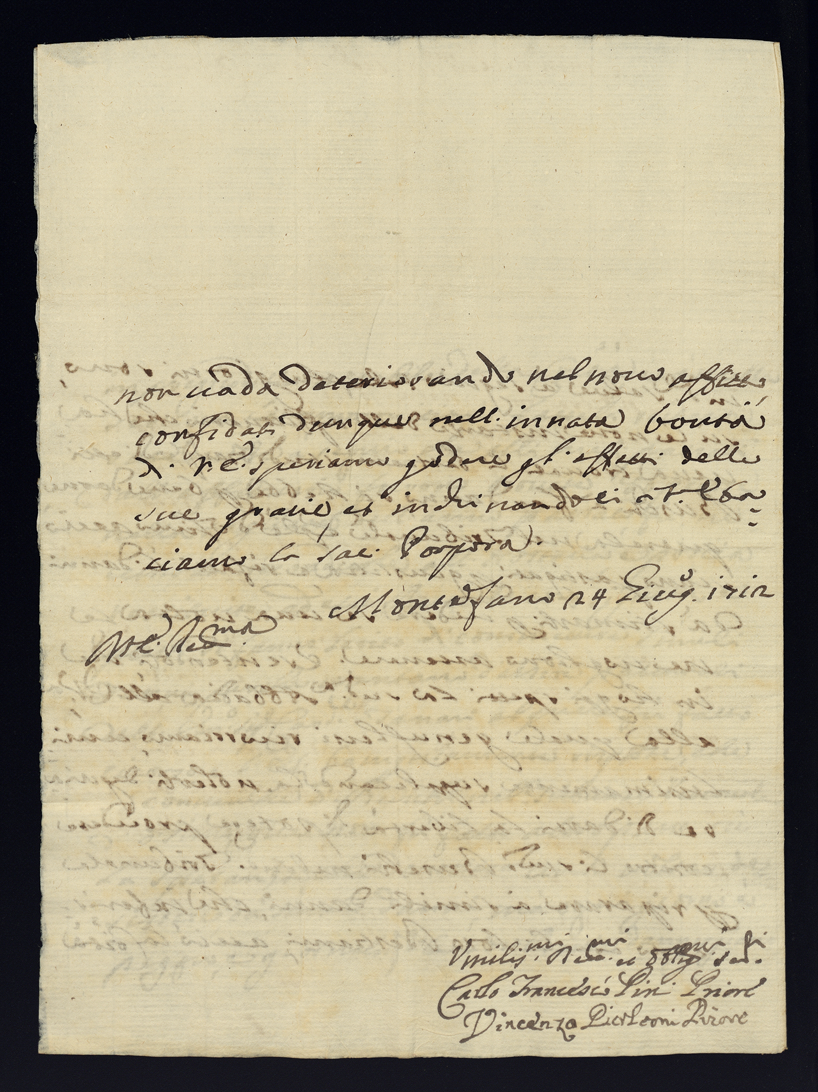 non uada deteriorando nel nouo affitto
confidati dunque nell' innata bontà
di V. E. speriamo godere gl' effetti delle
sue grazie, et inchinandoci a V. E. ba=
ciamo la Sac. Porpora.
Monte Fano 24 Giug.o 1712
Di V. E. Re.ma
Vmilis.mi Deu.mi et Obblig.mi Ser.i
Carlo Francesco Pini Priore
Vincenzo Pierleoni Priore